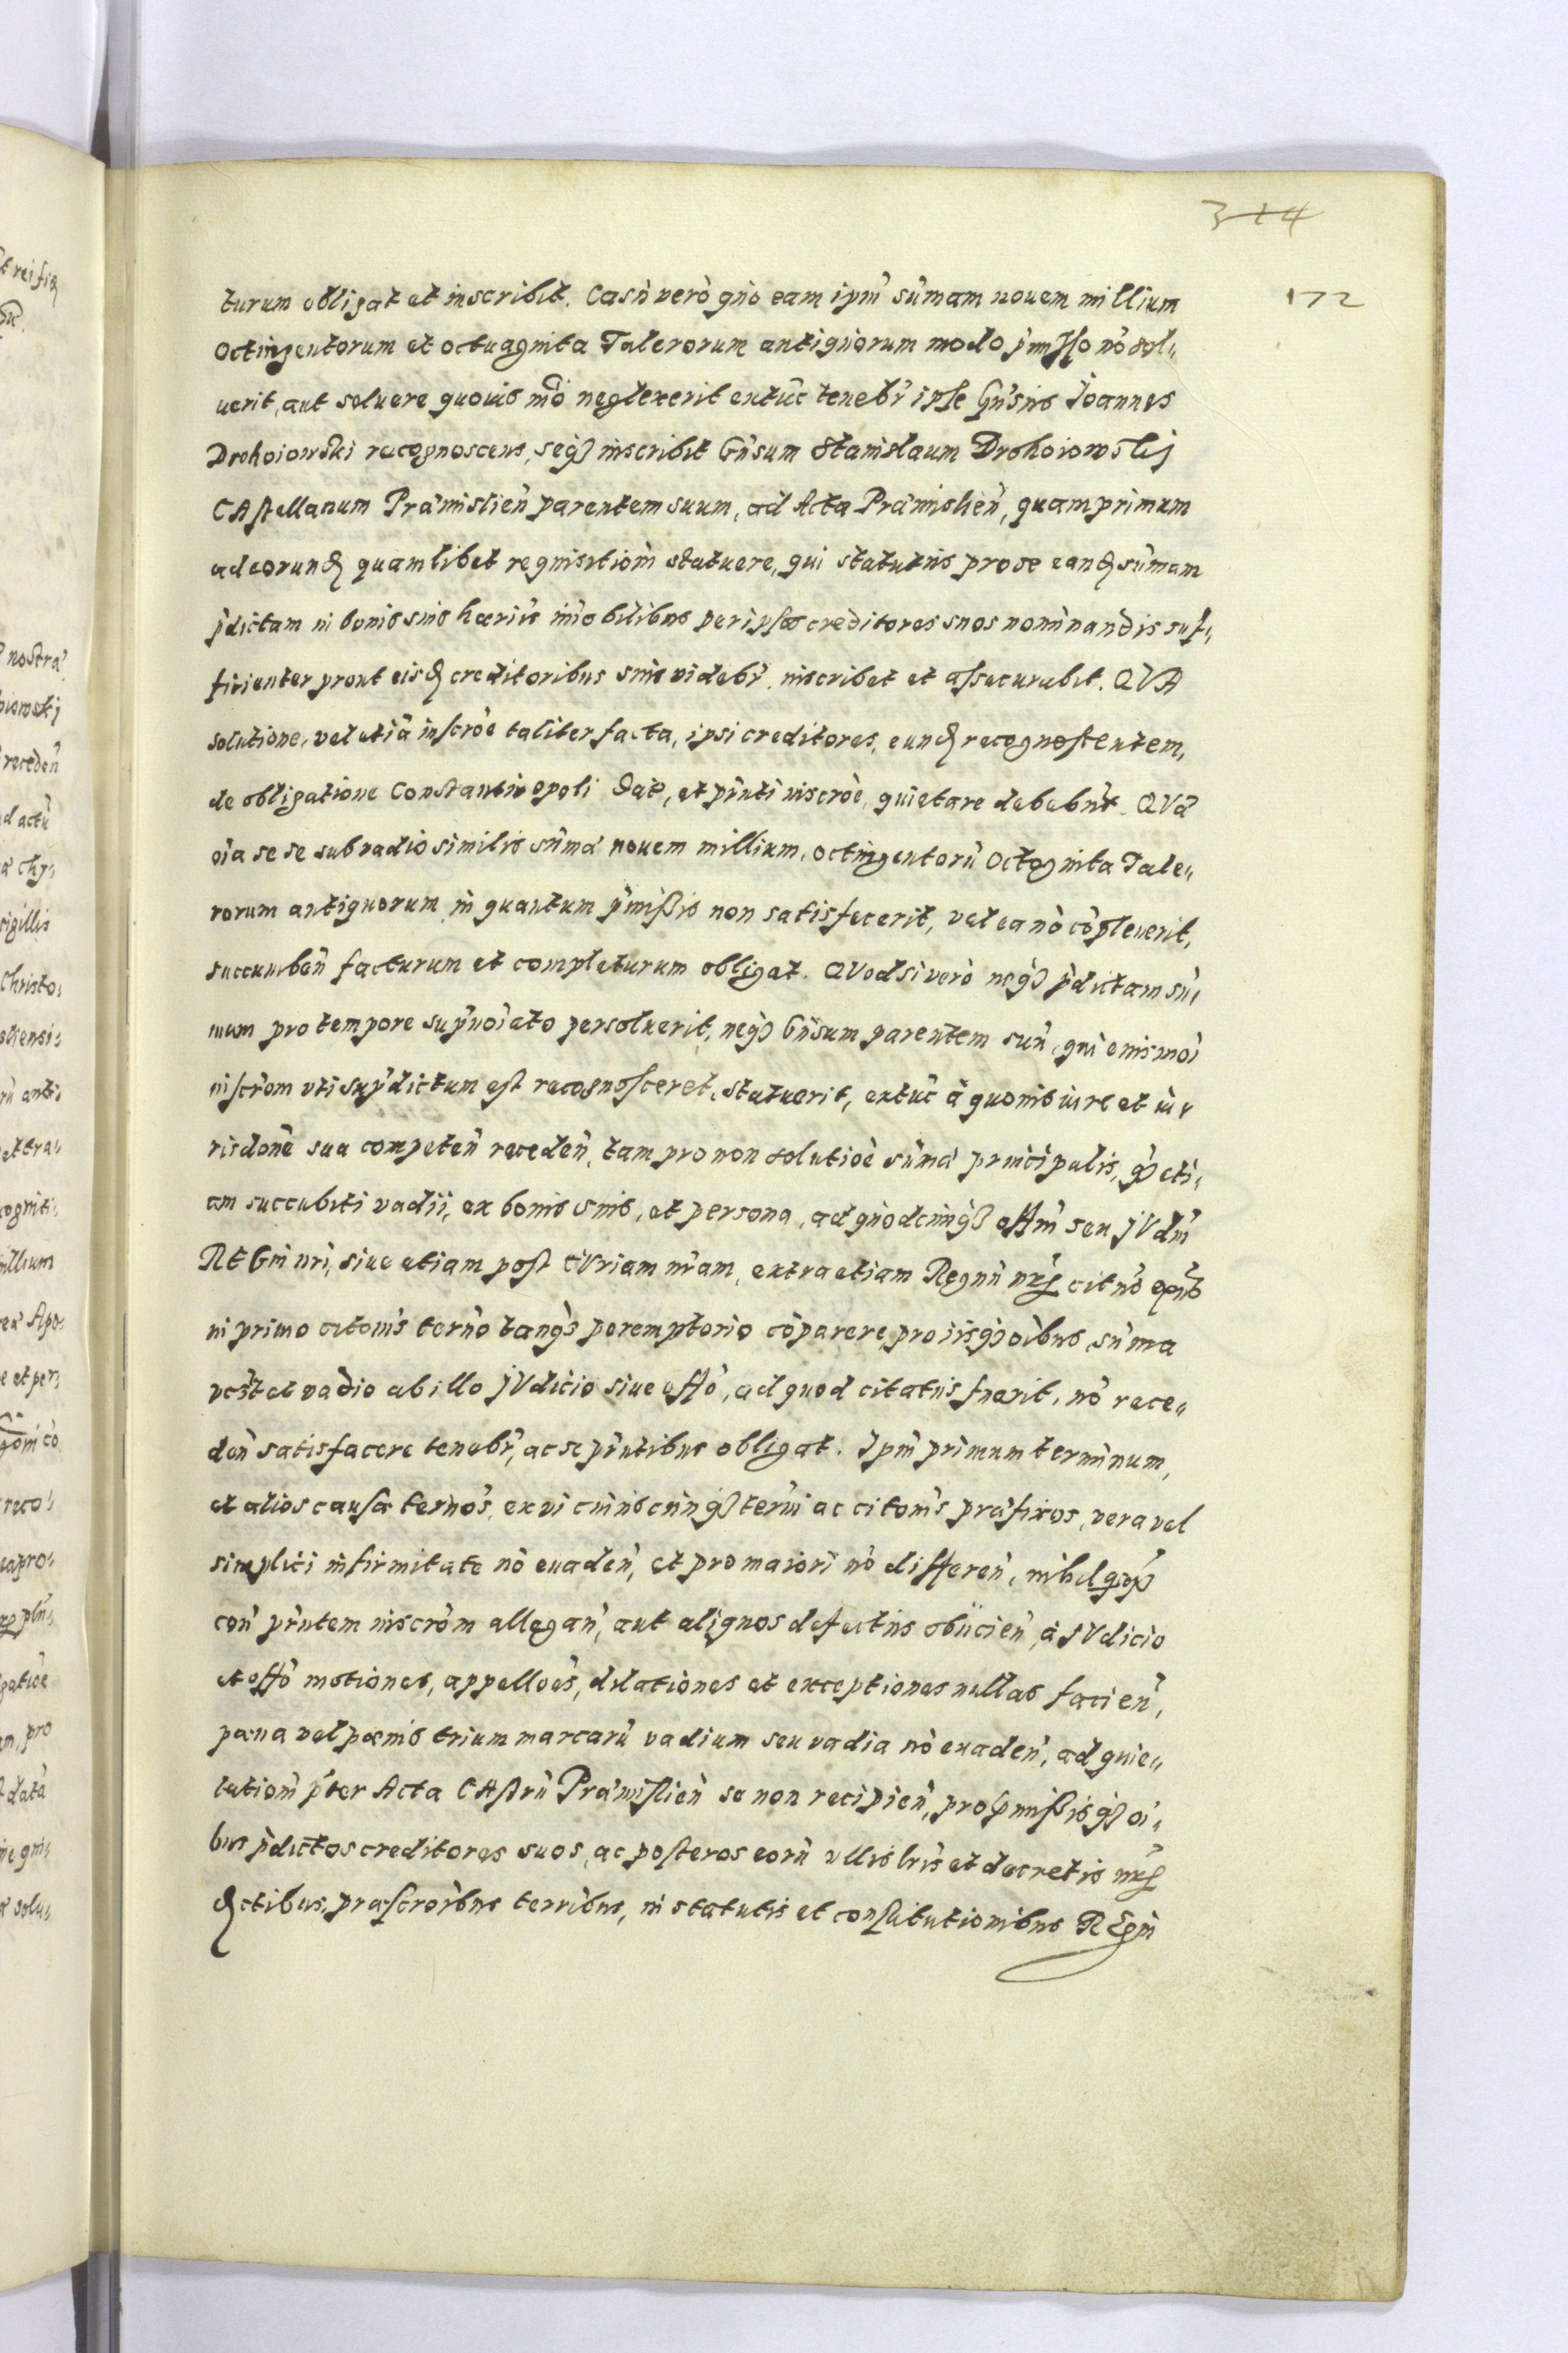 314
172
turum obligat et inscribit. Casu verò quo eam ipm̃ sum̃am nouem millium
Octingentorum et octuaginta Talerorum antiquorum modo p̃misso nõ sol„
uerit, aut soluere quouis mõ neglexerit extũc tenebr̃ ipse Gñsus Joannes
Drohoiowski recognoscens, seqʒ inscribit Gñsum Stanislaum Drohoiowskj
CAstellanum Præmislień parentem suum, ad Acta Præmislień, quamprimum
ad eorundẽ quamlibet requisitiom̃ statuere, qui statutus pro se eandẽ sum̃am
p̃dictam in bonis suis hæriis im̃obilibus per ipsos creditores suos nominandis suf„
ficienter prout eisdẽ creditoribus suis videbr̃, inscribet et assecurabit. QVA
solutione, vel etiã inscrõe taliter facta, ipsi creditores, eundẽ recognoscentem,
de obligatione Constantinopoli dat, et pñti inscrõe, quietare debebũt. QVæ
oĩa se se sub vadio similis sum̃æ nouem millium, octingentorũ Octoginta Tale„
rorum antiquorum in quantum p̃missis non satisfecerit, vel ea nõ cõpleuerit,
succumbeń facturum et completurum obligat. QVod si verò neqʒ p̃dictam sũ„
mam pro tempore supr̃noĩato persoluerit, neqʒ Gñsum parentem suũ, qui eiusmõi
inscrõm vti supr̃dictum est recognosceret, statuerit, extũc à quouis iure et iu„
risdõne sua competeń recedeń, tam pro non solutiõe sum̃æ principalis, qʒ eti„
am succubiti vadii, ex bonis suis, et persona, ad quodcunqʒ offm̃ seu jVdm̃
REGni nr̃i, siue etiam post cVriam nr̃am, extra etiam Regnũ nr̃m citt̃us
in primo citoñis termõ tanqʒ peremptorio cõparere, pro iisqʒ oĩbus, sum̃a
vest et vadio ab illo jVdicio siue offõ, ad quod citatus fuerit, nõ rece„
deń satisfacere tenebr̃, ac se pñtibus obligat. Ipm̃ primum terminum,
et alios causæ termõs, ex vi cuiuscunqʒ termi ac citoñis præfixos, vera vel
simplici infirmitate nõ euadeń, et pro maiori nõ differeń, nihilqʒ
con pñtem inscrõm allegań, aut aliquos defectus obiicień, à jVdicio
et offõ motiones, appellões, dilationes et exceptiones nullas facień,
pæna vel pænis trium marcarũ vadium seu vadia nõ euadeń, ad quie„
tatiom̃ p̃ter Acta CAstrũ Præmislień se non recipień, pro p̃missisqʒ oĩ„
bus p̃dictos creditores suos, ac posteros eorũ vllis lr̃is et decretis nr̃is
dẽctibus, præscroĩbus terribus, in statutis et constitutionibus REgni